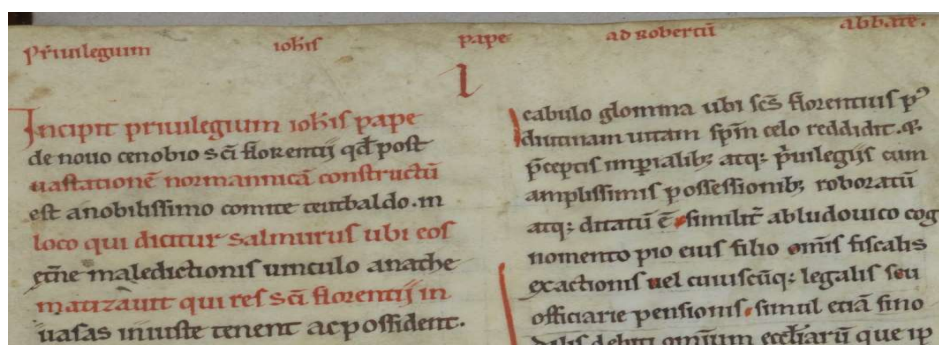 Priuilegium ioħis pape ad robertū abbate.
l
Incipit priuilegium ioħis pape
de nouo cenobio sc̄i florentij qđ post
uastationē normannicā constructū
est anobilissimo comite teutbaldo. in
loco qui dicitur salmurus ubi eos
et̄ne maledictionis uinculo anathe
matizauit qui res sc̄i florentij in
uasas iniuste tenent acpossident.
cabulo glomna ubi sc̄s florentius pꝰ
diutinam uitam sp̄m celo reddidit. q̵.
p̄ceptis imp̄ialibꝫ atqꝫ p̄uilegijs cum
amplissimis possessionibꝫ roboratū
atqꝫ ditatū ē. similit̄ abludouico cog
nomento pio eius filio om̄is fiscalis
exactionis uel cuiuscūqꝫ legalis seu
officiarie pensionis. simul etiā sino
dilis debiti omnium eccl̄iarū que ip